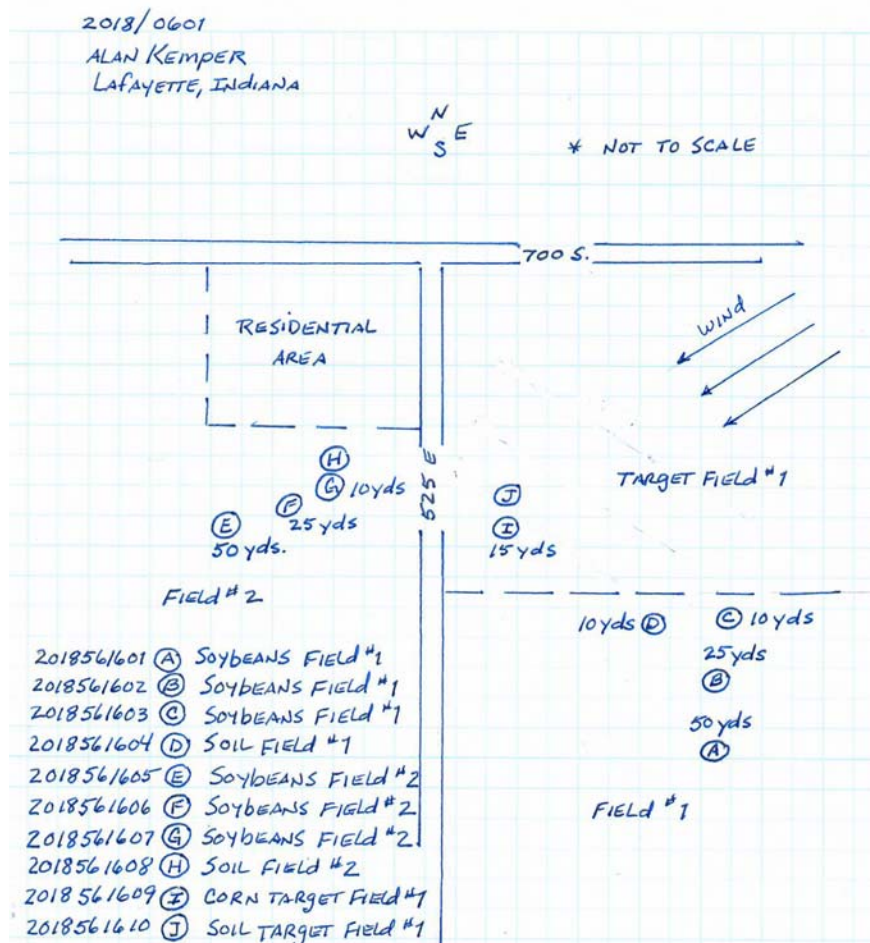 2018/0601
ALAN KEMPER
LAFAYETTE, INDIANA
N
W E
S
* NOT TO SCALE
700 S.
WIND
RESIDENTIAL
AREA
525 E
TARGET FIELD #1
H
G 10yds
F
25 yds
E
50 yds.
J
I
15 yds
FIELD #2
10yds D
C 10 yds
25 yds
B
50 yds
A
FIELD #1
2018561601 A SOYBEANS FIELD #1
2018561602 B SOYBEANS FIELD #1
2018561603 C SOYBEANS FIELD #1
2018561604 D SOIL FIELD #1
2018561605 E SOYBEANS FIELD #2
2018561606 F SOYBEANS FIELD #2
2018561607 G SOYBEANS FIELD #2
2018561608 H SOIL FIELD #2
2018561609 I CORN TARGET FIELD #1
2018561610 J SOIL TARGET FIELD #1